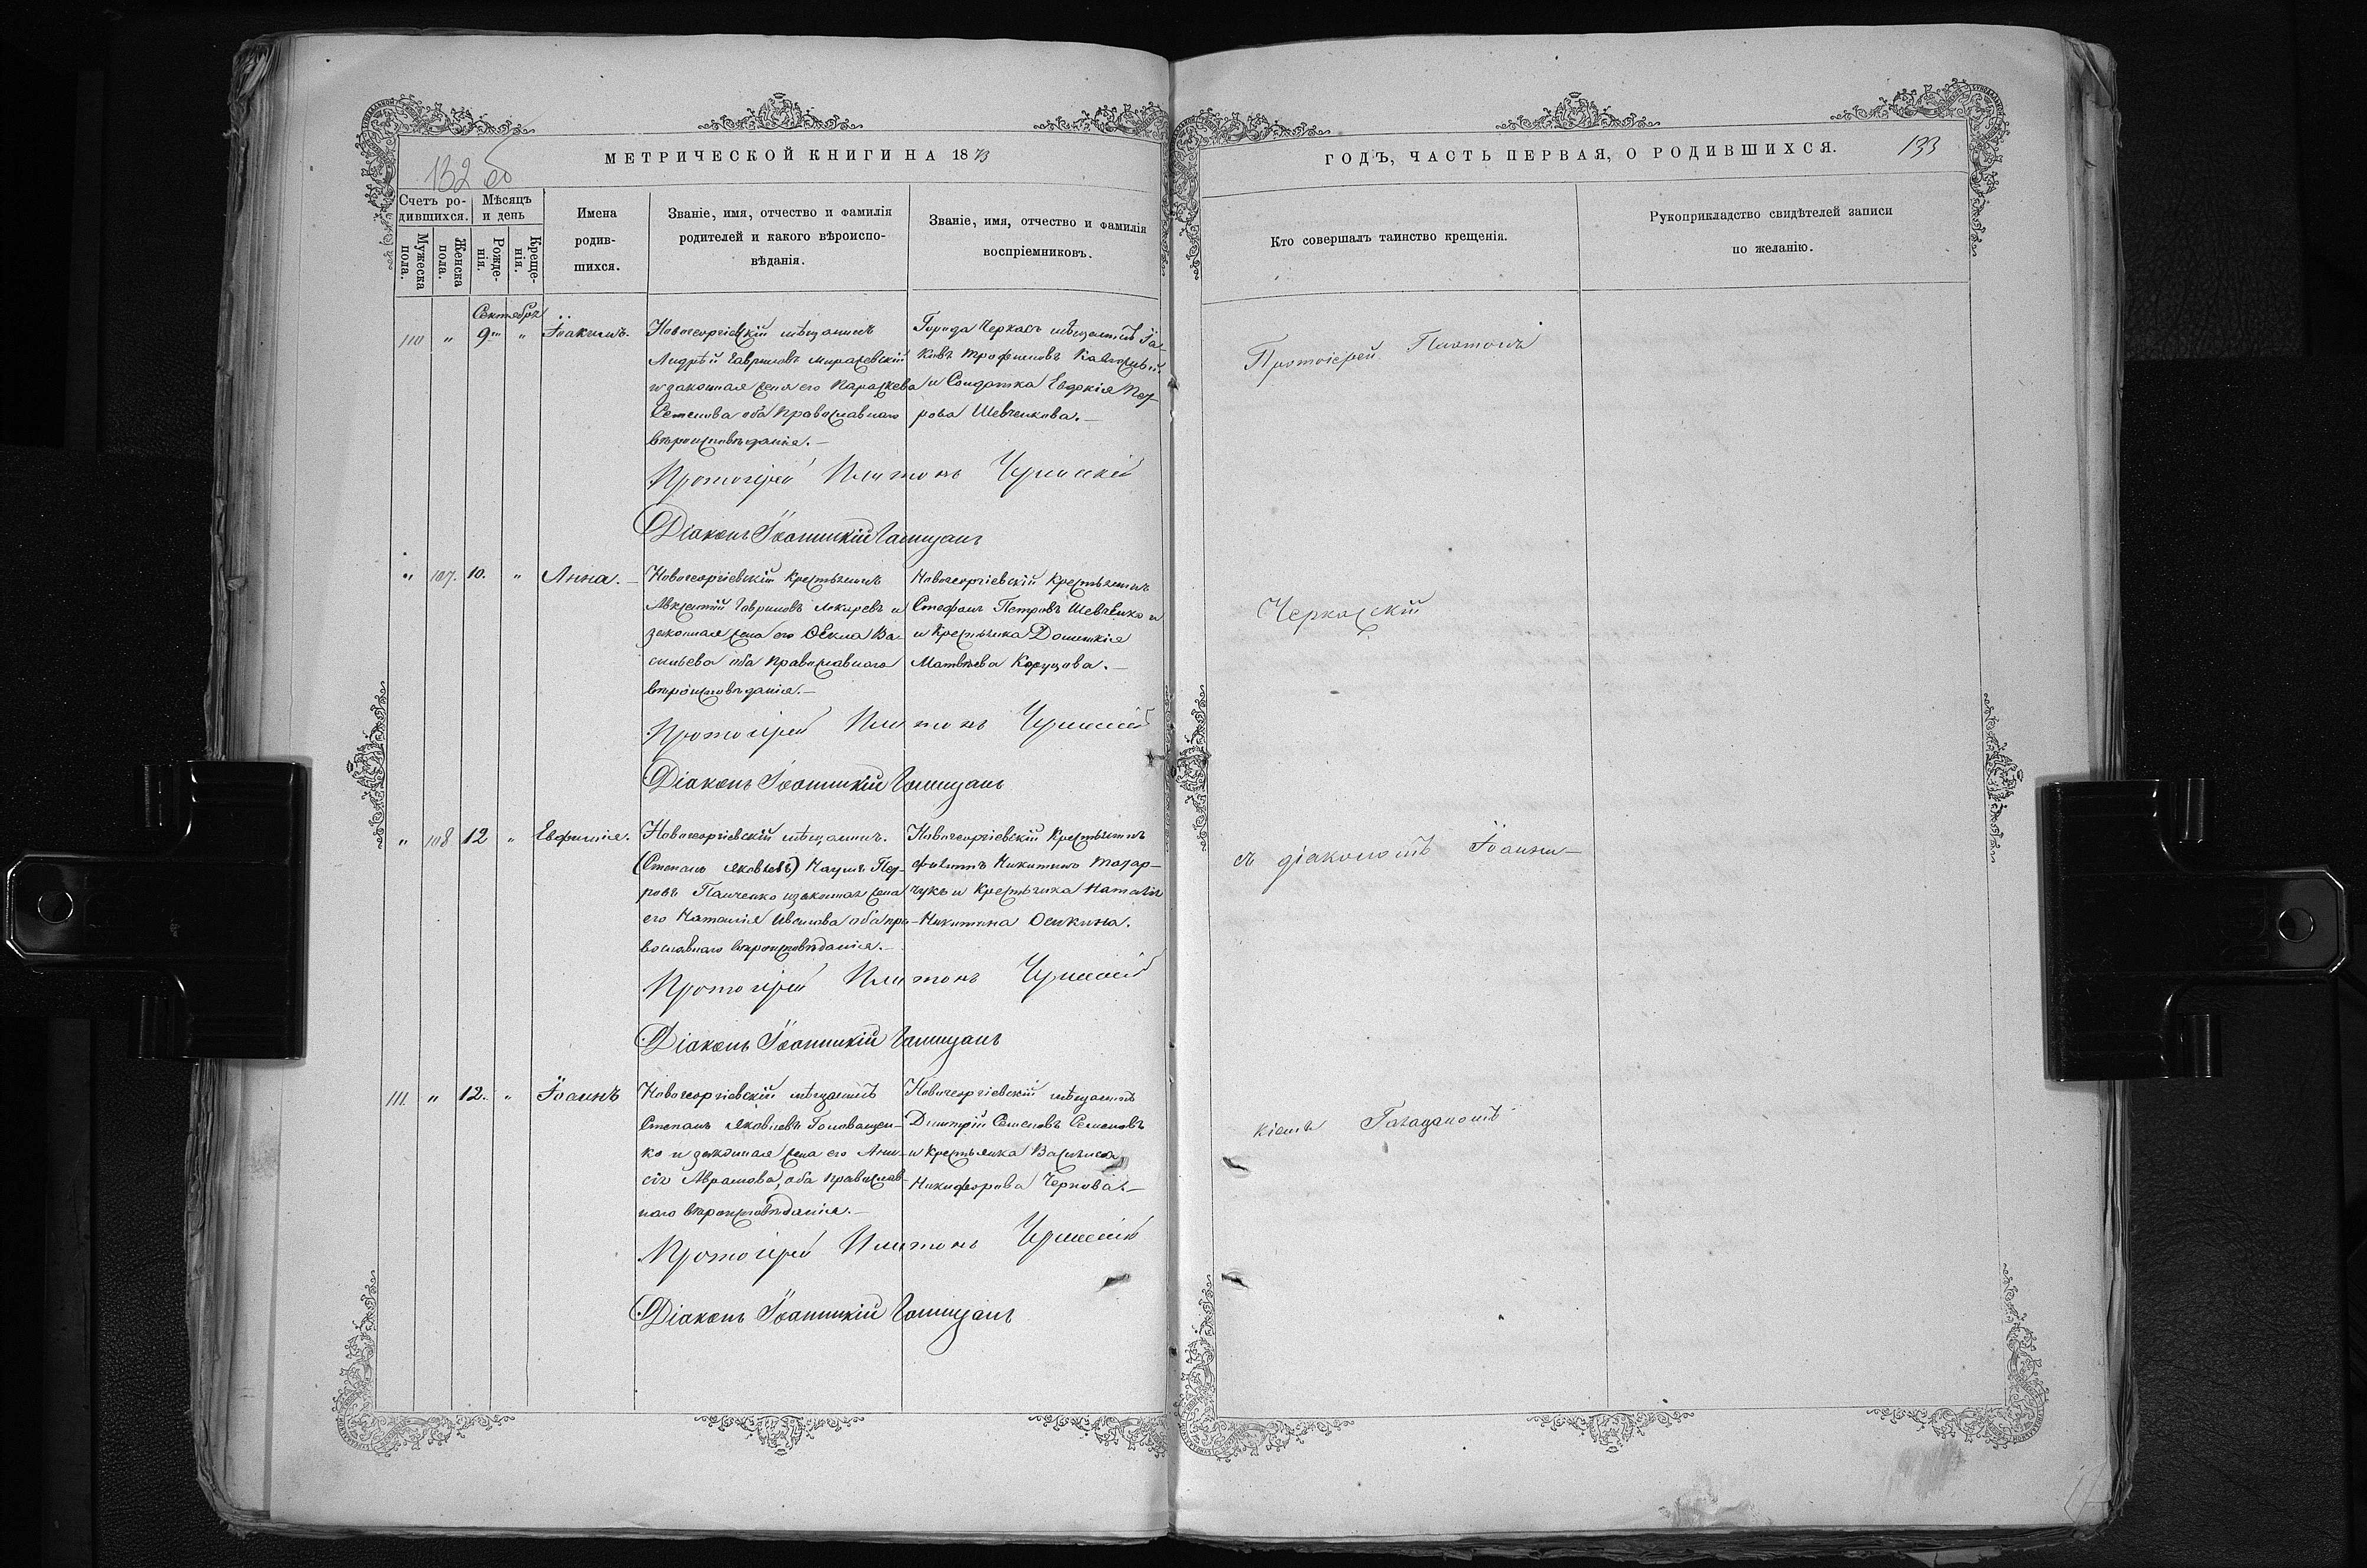 132 об
МЕТРИЧЕСКОЙ КНИГИ НА 1873
ГОДЪ, ЧАСТЬ ПЕРВАЯ, О РОДИВШИХСЯ.
133
Счетъ ро-
дившихся.
Мужеска
пола.
Женска
пола.
Мѣсяцъ
и день
Рожде-
нія.
Креще-
нія.
Имена
родив-
шихся.
Званіе, имя, отчество и фамилія
родителей и какого вѣроиспо-
вѣданія.
Званіе, имя, отчество и фамилія
воспріемниковъ.
Кто совершалъ таинство крещенія.
Рукоприкладство свидѣтелей записи
по желанію.
Сентябрь
110 " 9 " Іоакимъ.
Новогеоргіевскій мѣщанинъ
Андрѣй Гавриловъ
и законная жена его Параскева
Семенова оба православнаго
вѣроисповѣданія.—
Города Черкасъ мѣщанинъ Іа-
ковъ Трофимовъ
и Солдатка Евдокія Пет-
рова Шевченкова.—
Протоіерей Платонъ
Діаконъ Іоанникій
" 107. 10. " Анна.—
Новогеоргіевскій крестьянинъ
Гавриловъ и
законная жена его Ѳекла Ва-
сильева оба православнаго
вѣроисповѣданія.—
Новогеоргіевскій крестьянинъ
Стефанъ Петровъ Шевченко и
и крестьянка Домникія
Матвѣева
Протоіерей Платонъ
Діаконъ Іоанникій
" 108 12 " Евфимія.
Новогеоргіевскій мѣщанинъ.
(Степанъ Яковлевъ) Наумъ Пет-
ровъ Панченко и законная жена
его Наталія Иванова оба пра-
вославнаго вѣроисповѣданія.—
Новогеоргіевскій крестьянинъ
Филиппъ Никитинъ Назар-
чукъ и крестьянка Наталія
Никитина
Протоіерей Платонъ
Діаконъ Іоанникій
111. " 12. " Іоаннъ
Новогеоргіевскій мѣщанинъ
Степанъ Яковлевъ Головащен-
ко и законная жена его Ани-
сія Абрамова, оба православ-
наго вѣроисповѣданія.—
Новогеоргіевскій мѣщанинъ
Димитрій Семеновъ Семеновъ
и крестьянка Василиса
Никифорова Чернова.—
Протоіерей Платонъ
Діаконъ Іоанникій
Протоіерей Платонъ
Черкасскій
съ діакономъ Іоанни-
кіемъ